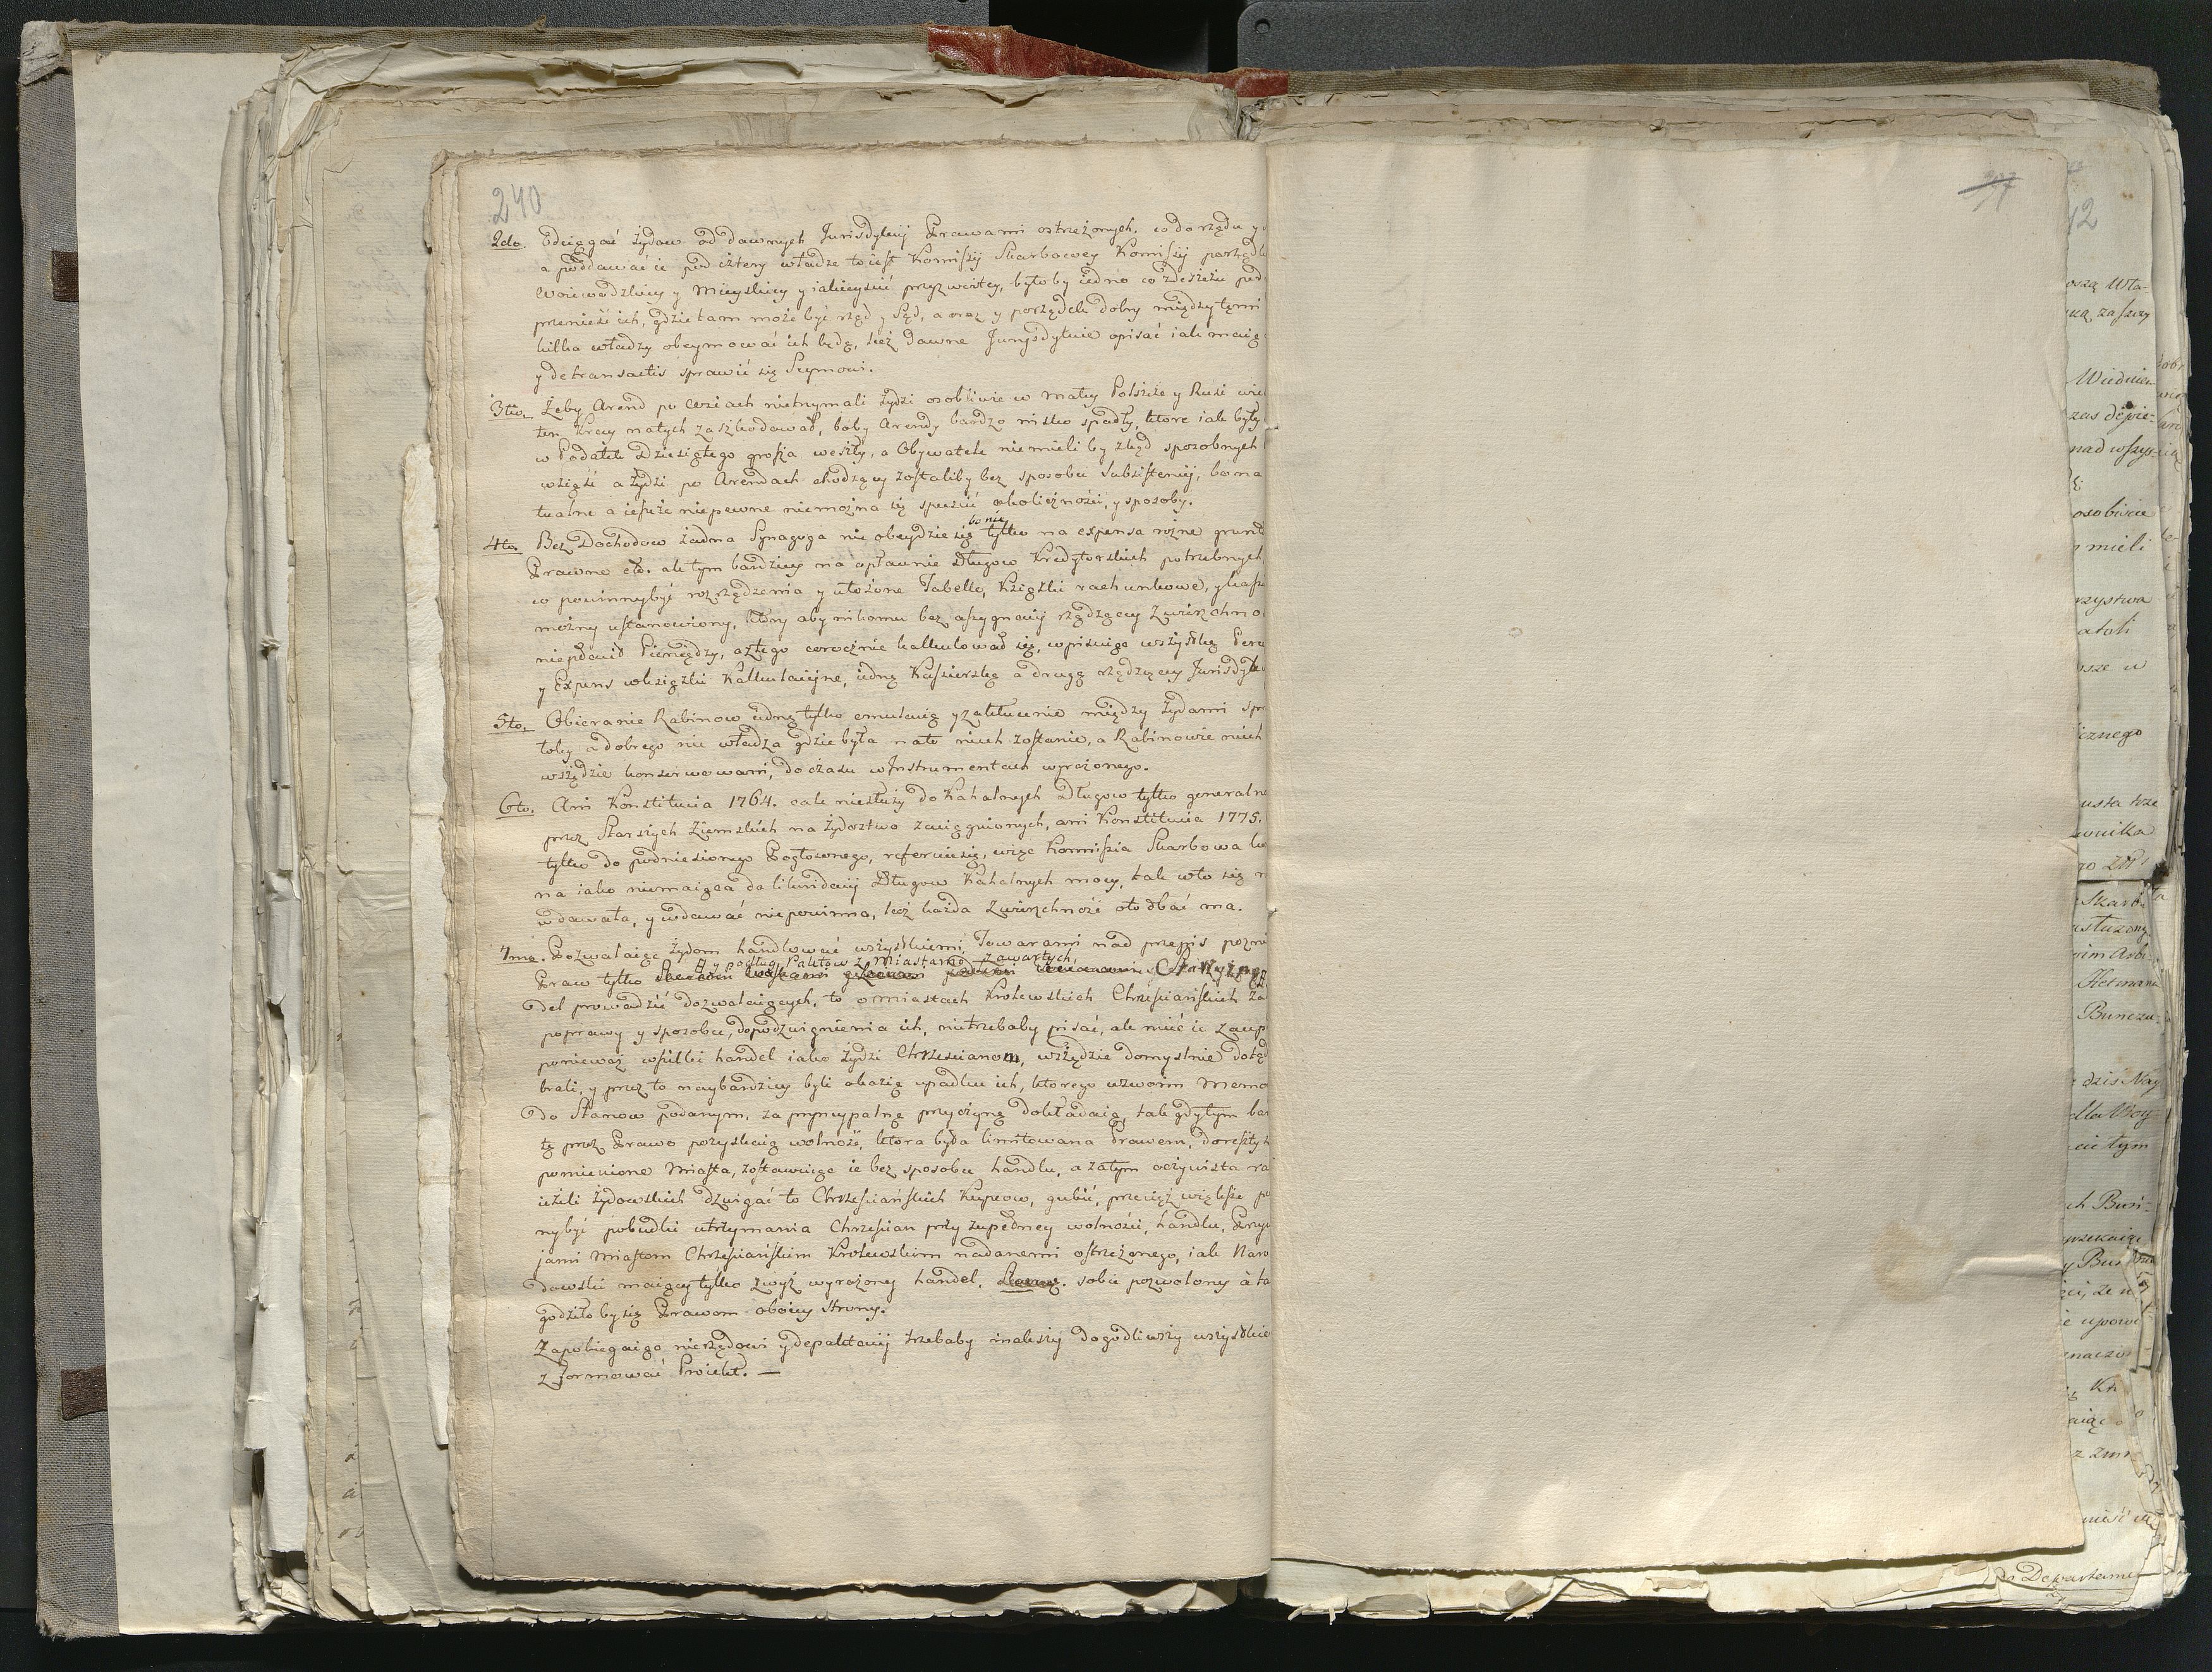 240
2do. Odciągać Żydow od dawnych Jurisdykcij Prawami ostrzeżonych, co do rządu y
a poddawać ie pod cztery władze to iest Komissij Skarbowey Komissij porządk
Woiewodzkiey y Mieyskiey y iakieyściś przyzwoitey, byłoby iedno co zdzieżu pod
przenieść ich, gdzie tam może być rząd y Sąd, a oraz y porządek dobry między tęmi
kilka władzy obeymować ich będą, lecz Dawne Jurysdykcie opisać iak maią
y de transactis sprawić się Seymowi.
3tio. Żeby Arend po wsiach nietrzymali Żydzi osobliwie w małey Polszcze y Rusi wie
ten Kray małych zaszkodował, boby Arendy bardzo nisko spadły, ktore iak były
w Podatek Dziesiątego grosza weszły, a Obywatele nie mieli by zkąd sposobnych
wziąść a Żydzi po Arendach chodzący zostaliby bez sposobu Subsistencij, bo na
tualne a ieszcze niepewne niemożna się spuścić okoliczności, y sposoby.
4to. Bez Dochodow żadna Synagoga nie obeydzie się bo nie tylko na expensa rożne grunt
Prawne etc. ale tym bardziey na opłacenie Długow Kredytorskich potrzebnych,
co powinny być rozrządzenia y ułożone Tabelle, Książki rachunkowe, y kass
możny ustanowiony, ktory aby nikomu bez assygnacij rządzącey Zwierzchno
niepłacił Pieniędzy, a z tego corocznie kalkulował się, wpisuiąc wszystkę Perc
y Expens w książki Kalkulacijne, iedną Kassierską a drugą rządzącey Jurisdyk
5to. Obieranie Rabinow iedną tylko emulacią y zakłucenie między Żydami spr
toby a dobrego nic władza gdzie była na to niech zostanie, a Rabinowie niech
wszędzie konserwowani, do czasu w Instrumentach wyrażonego.
6to. Ani Konstitucia 1764. cale niesłuży do Kahalnych Długow tylko generaln
przez Starszych Ziemskich na Żydostwo zaciągnionych, ani Konstitucia 1775.
tylko do podniesionego Pogłownego, referuie się, więc Kommissia Skarbowa ko
na iako niemaiąca do likwidacij Długow Kahalnych mocy, tak w to się n
wdawała, y wdawać niepowinna, lecz każda Zwierzchność o to dbać ma.
7mo. Pozwalaiąc Żydom handlować wszystkiemi Towarami nad przepis pozni
y podług Paktow z Miastami zawartych,
Praw tylko
del prowadzić dozwalaiących, to o miastach Krolewskich Chrześciańskich Ża
poprawy y sposobu, dopodzwignienia ich, nietrzebaby pisać, ale mieć ie zaup
ponieważ wszelki handel iako Żydzi Chrześcianom, wszędzie domyslnie dotąd
brali, y przez to naybardziey byli okazią upadku ich, ktorego w swoim Memo
do Stanow podanym, za pryncypalną przyczynę dokładaią, tak gdy tym bar
tę przez Prawo pozyskaią wolność, ktora była limitowana Prawem, doreszty
pomienione Miasta, zostawuiąc ie bez sposobu handlu, a zatym oczywista ra
ieżeli Żydowskich dzwigać to Chrześciańskich Kupcow, gubić, przecięż większe po
ny być pobudki utrzymania Chrześcian przy zupełney wolności, handlu, Przyw
jami Miastom Chrześciańskim Krolewskim nadanemi ostrzeżonego, iak Naro
dowski maiący tylko zwyż wyrażony handel, sobie pozwolony à ta
godziłoby się Prawom oboiey strony.
Zapobiegaiąc nierządowi y depaktacij trzebaby inakszy dogodliwszy wszystkie
zformować Proiekt. —
12
oszą Wła-
Wiedzie
zas dzie-
nad wszys-
osobiscie
mieli
rzystwa
atoli
icznego
usta trze
wnika
Skarb
Hetmana
Bunczu-
dzis Nay
dla Woy
cie tym
ch Buń-
Departame